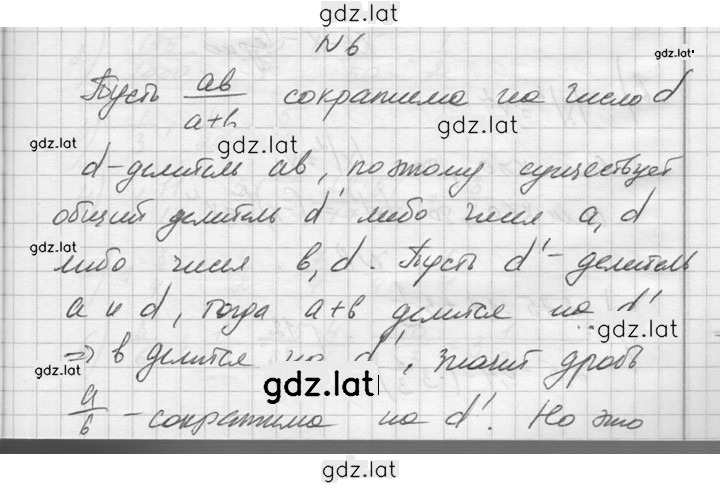 gdz.lat
N 6
gdz.lat
Пусть ab/(a+b) сократима на число d
gdz.lat
gdz.lat
d-делитель ab, поэтому существует
общий делитель d' либо чисел a, d
gdz.lat
либо чисел b, d. Пусть d'-делитель
a и d, тогда a+b делится на d'
gdz.lat
=> b делится на d', значит дробь
gdz.lat
a/b - сократима на d'. Но это
gdz.lat